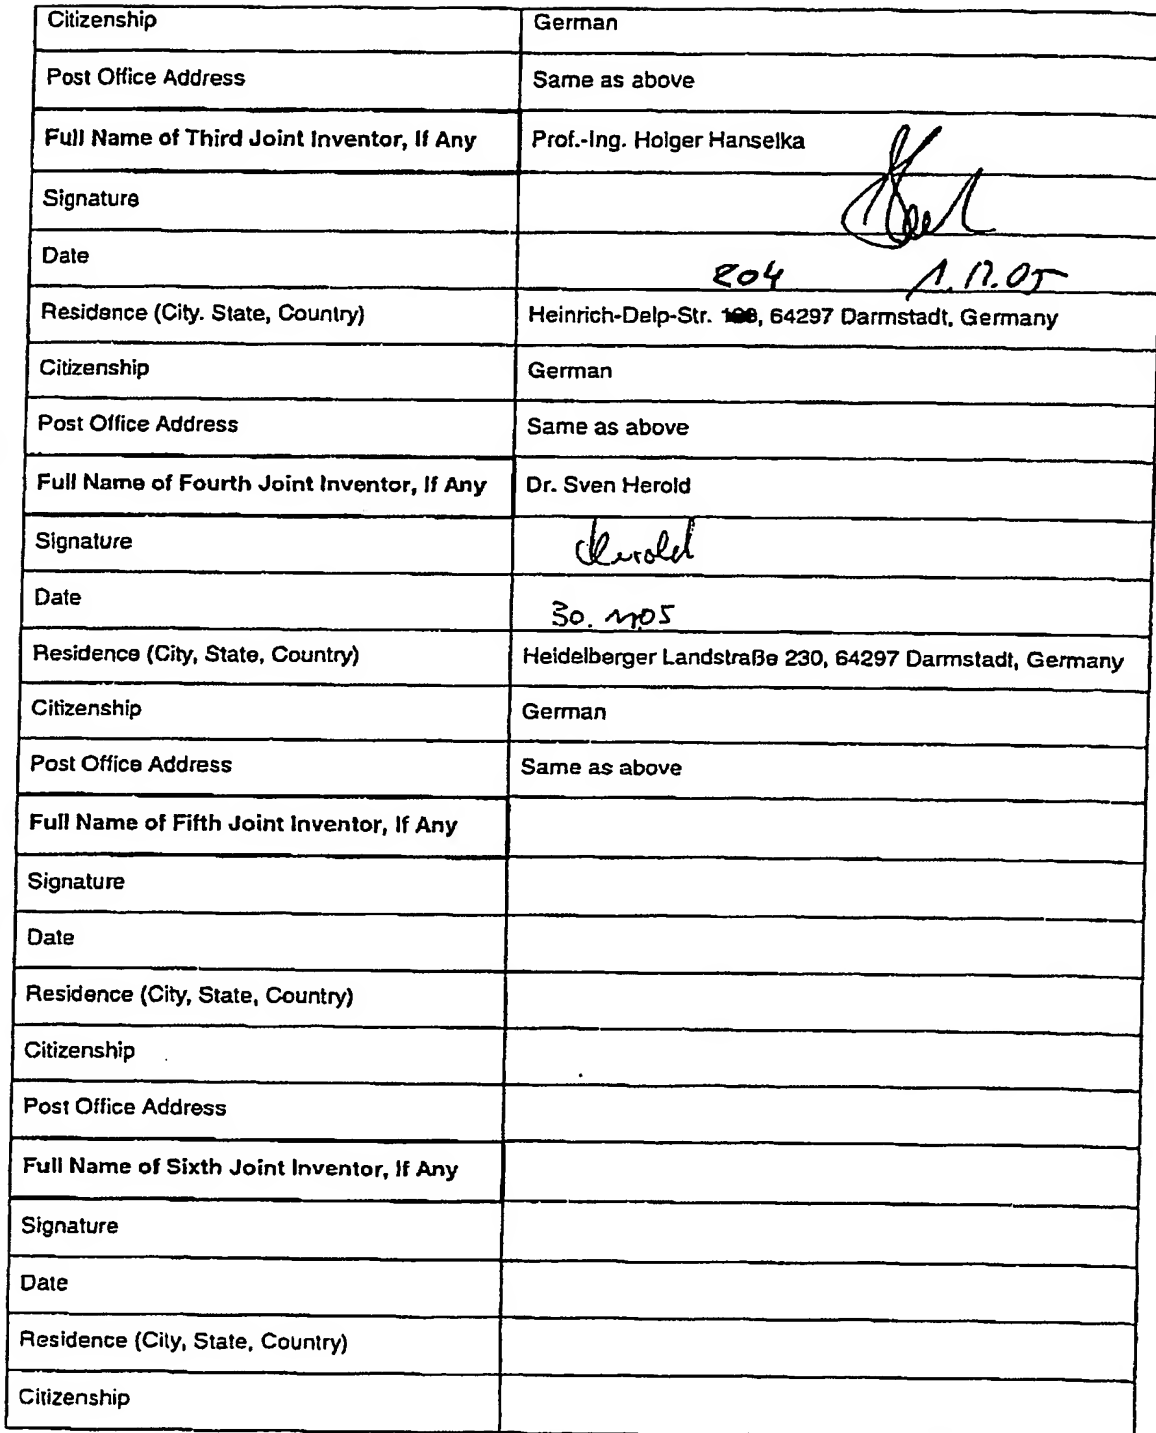 Citizenship German
Post Office Address Same as above
Full Name of Third Joint Inventor, If Any Prof.-Ing. Holger Hanselka
Signature
Date
204
Residence (City. State, Country) Heinrich-Delp-Str. , 64297 Darmstadt, Germany
Citizenship German
Post Office Address Same as above
Full Name of Fourth Joint Inventor, If Any Dr. Sven Herold
Signature Herold
Date 30.
Residence (City, State, Country) Heidelberger Landstraße 230, 64297 Darmstadt, Germany
Citizenship German
Post Office Address Same as above
Full Name of Fifth Joint Inventor, If Any
Signature
Date
Residence (City, State, Country)
Citizenship
Post Office Address
Full Name of Sixth Joint Inventor, If Any
Signature
Date
Residence (City, State, Country)
Citizenship